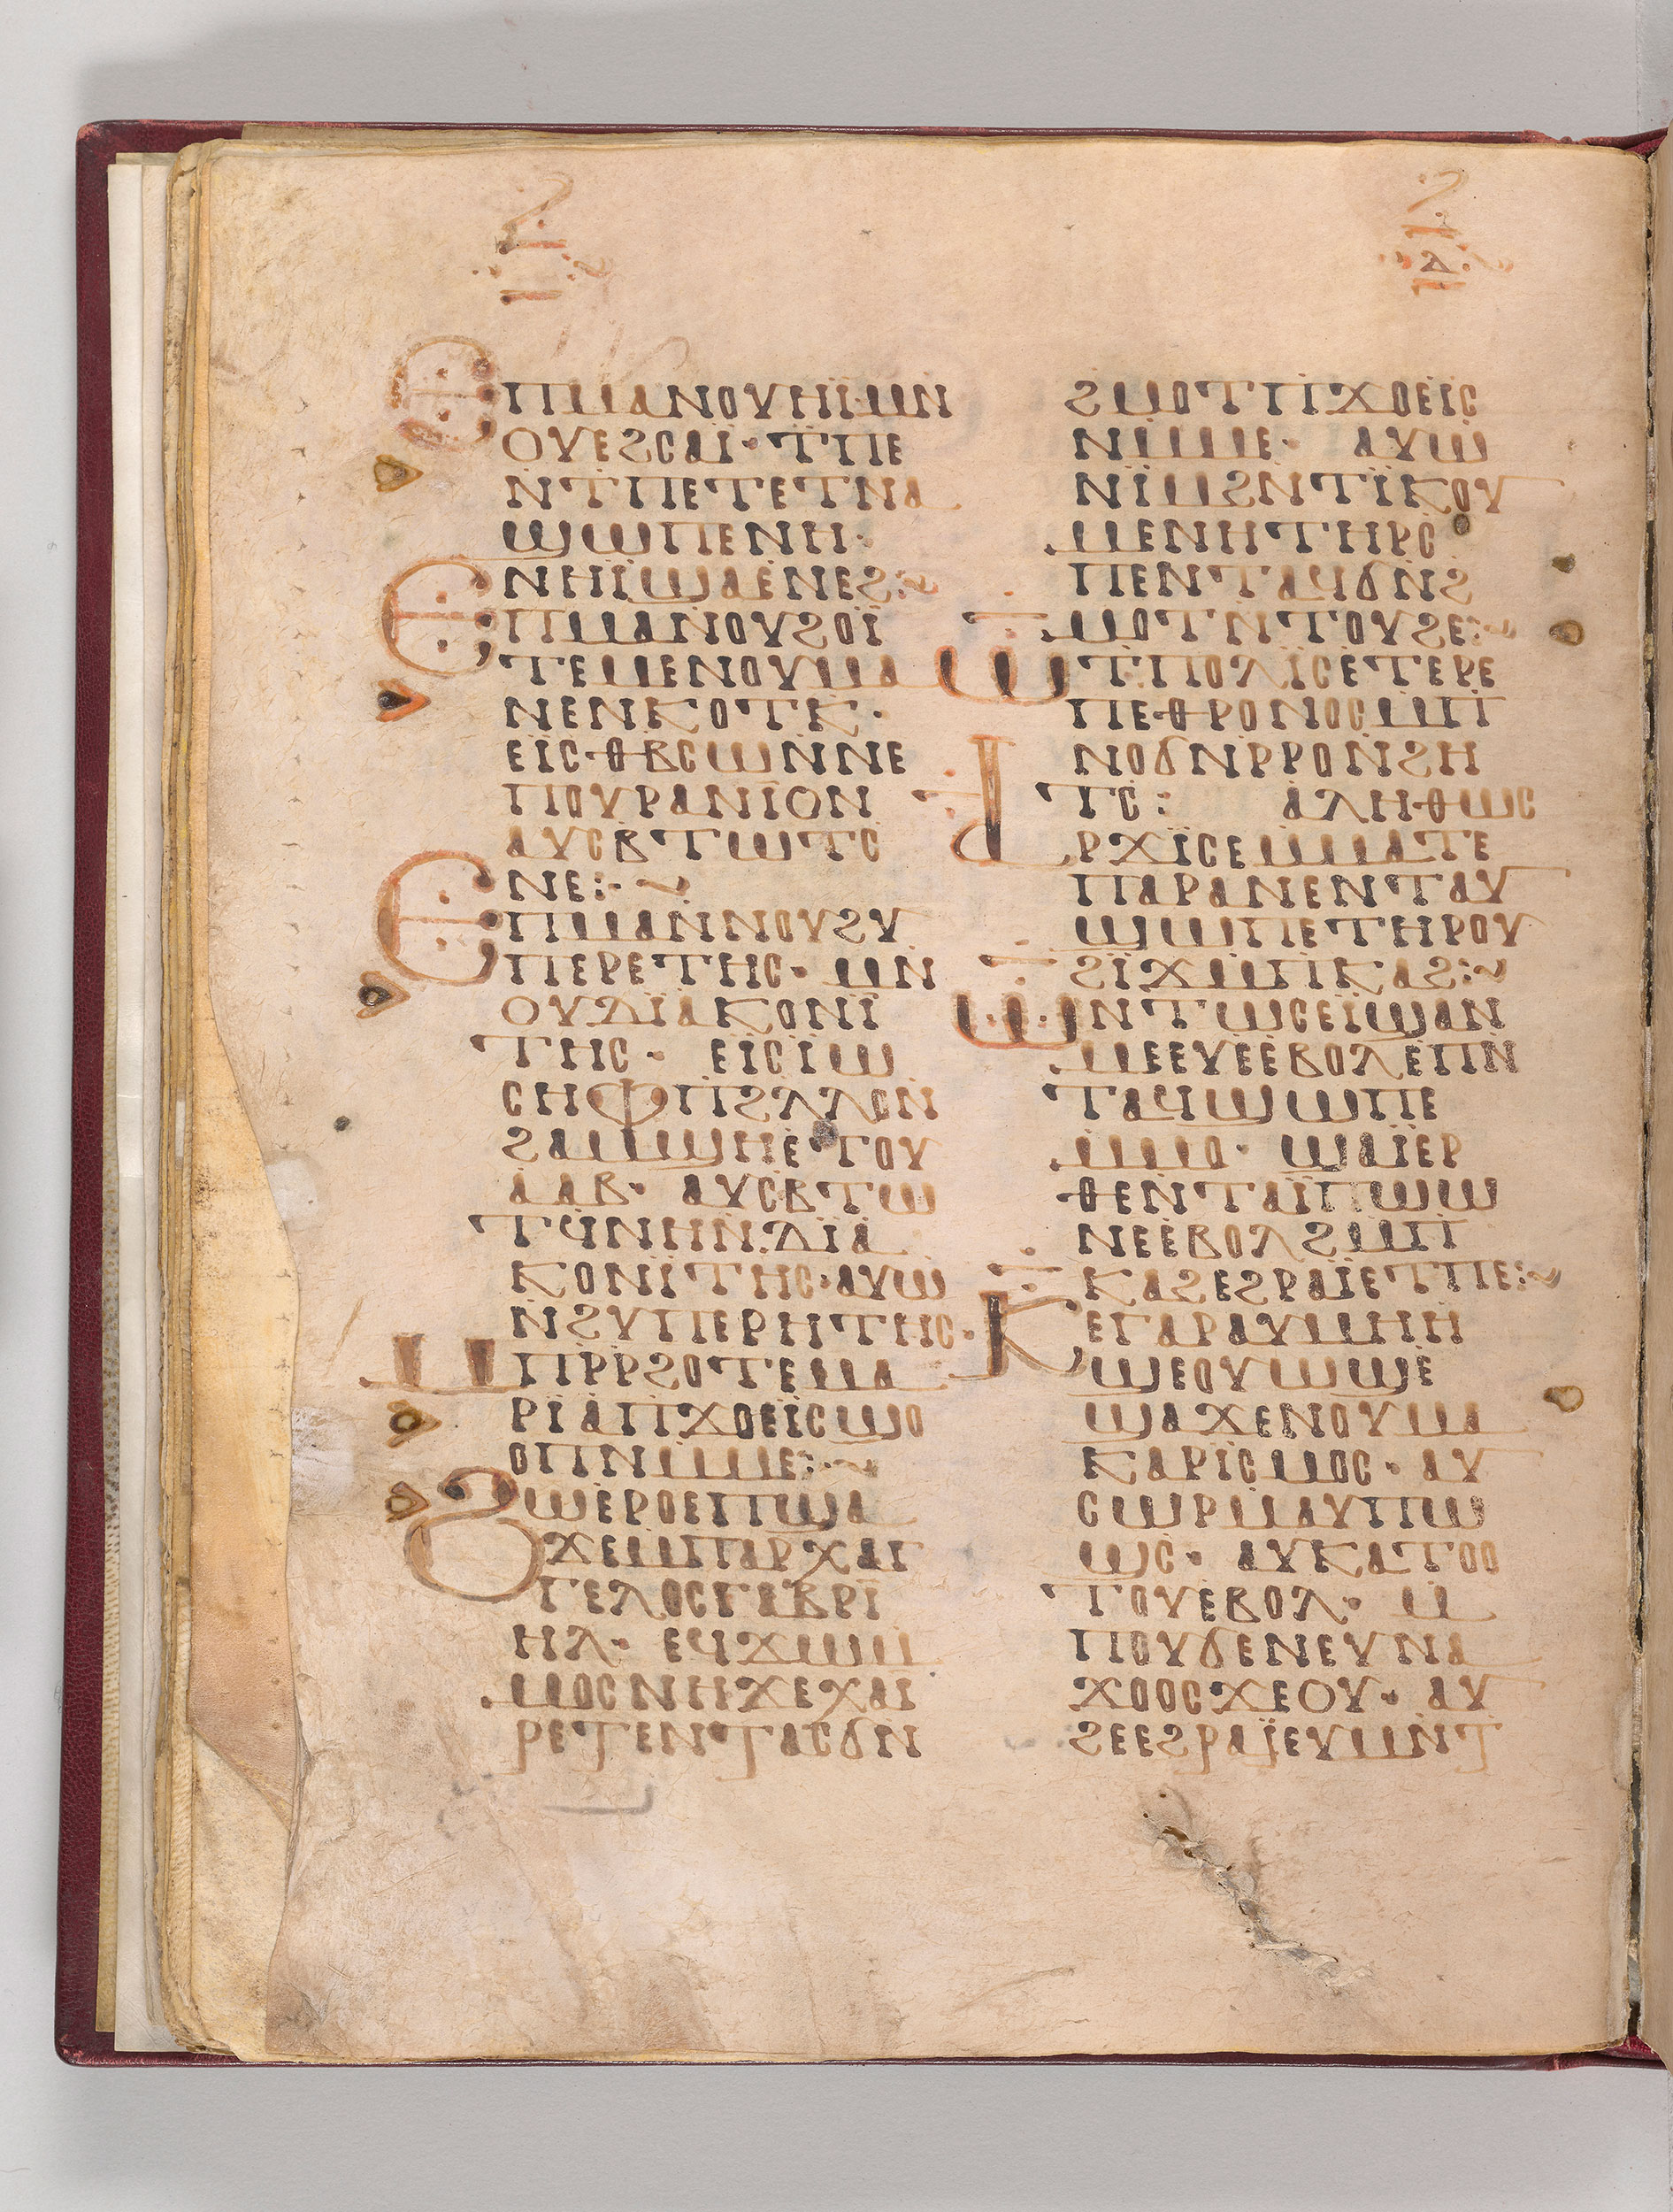 ⲉⲡⲙⲁⲛⲟⲩⲏⲓ̈·ⲙⲛ
ⲟⲩⲉϩⲥⲁⲓ̈· ⲧⲡⲉ
ⲛⲧⲡⲉⲧⲉⲧⲛⲁ
ϣⲱⲡⲉⲛⲏ·
ⲛⲏⲓ̈ϣⲁⲉⲛⲉϩ:~
ⲉⲡⲙⲁⲛⲟⲩϩⲟⲓ̈
ⲧⲉⲙⲉⲛⲟⲩⲙⲁ
ⲛⲉⲛⲕⲟⲧⲕ·
ⲉⲓⲥ·ⲑⲃⲥⲱⲛⲛⲉ
ⲡⲟⲩⲣⲁⲛⲓⲟⲛ
ⲁⲩⲥⲃⲧⲱⲧⲥ
ⲛⲉ:·~
ⲉⲡⲙⲁⲛⲛⲟⲩϩⲩ
ⲡⲉⲣⲉⲧⲏⲥ· ⲙⲛ
ⲟⲩⲇⲓ̈ⲁⲕⲟⲛⲓ
ⲧⲏⲥ· ⲉⲓⲥⲓⲱ
ⲥⲏⲫⲡϩⲗⲗⲟⲛ
ϩⲁⲙϣⲏⲉⲧⲟⲩ
ⲁⲁⲃ· ⲁⲩⲥⲃⲧⲱ
ⲧϥⲛⲏⲛⲇⲓ̈ⲁ
ⲕⲟⲛⲓⲧⲏⲥ·ⲁⲩⲱ
ⲛϩⲩⲡⲉⲣⲏⲧⲏⲥ·
ⲙⲡⲣⲣϩⲟⲧⲉⲙⲁ
ⲣⲓ̈ⲁⲡϫⲟⲉⲓ̈ⲥϣⲟ
ⲟⲡⲛⲙⲙⲉ:·~
ϭⲱⲉⲣⲟⲉⲡϣⲁ
ϫⲉⲙⲡⲁⲣⲭⲁⲅ
ⲅⲉⲗⲟⲥⲅⲁⲃⲣⲓ
ⲏⲗ· ⲉϥϫⲱⲙ
ⲙⲟⲥⲛⲏϫⲉⲭⲁⲓ
ⲣⲉⲧⲉⲛⲧⲁⲥϭⲛ
ϩⲙⲟⲧⲡϫⲟⲉⲓⲥ
ⲛⲙⲙⲉ· ⲁⲩⲱ
ⲛⲓ̈ⲙϩⲛⲧⲓ̈ⲕⲟⲩ
ⲙⲉⲛⲏⲧⲏⲣⲥ
ⲡⲉⲛⲧⲁϥϭⲛϩ
ⲙⲟⲧⲛⲧⲟⲩϩⲉ:~
ⲱⲧⲡⲟⲗⲓ̈ⲥⲉⲧⲉⲣⲉ
ⲡⲉⲑⲣⲟⲛⲟⲥⲙⲡ
ⲛⲟϭⲛⲣⲣⲟⲛϩⲏ
ⲧⲥ: ⲁⲗⲏⲑⲱⲥ
ⲁⲣϫⲓ̈ⲥⲉⲙⲙⲁⲧⲉ
ⲡⲁⲣⲁⲛⲉⲛⲧⲁⲩ
ϣⲱⲡⲉⲧⲏⲣⲟⲩ
ϩⲓ̈ϫⲙⲡⲕⲁϩ:~
ⲱⲛⲧⲱⲥⲉⲓ̈ϣⲁⲛ
ⲙⲉⲉⲩⲉⲉⲃⲟⲗⲉⲡⲛ
ⲧⲁϥϣⲱⲡⲉ
ⲙⲙⲟ· ϣⲁⲓ̈ⲉⲣ
ⲑⲉⲛⲧⲁⲓ̈ⲡⲱⲱ
ⲛⲉⲉⲃⲟⲗϩⲙⲡ
ⲕⲁϩⲉϩⲣⲁⲓ̈ⲉⲧⲡⲉ:~
ⲕⲉⲅⲁⲣⲁⲩⲙⲏⲏ
ϣⲉⲟⲩⲱϣⲉ
ϣⲁϫⲉⲛⲟⲩⲙⲁ
ⲕⲁⲣⲓⲥⲙⲟⲥ· ⲁⲩ
ⲥⲱⲣⲙⲁⲩⲡⲱ
ϣⲥ· ⲁⲩⲕⲁⲧⲟⲟ
ⲧⲟⲩⲉⲃⲟⲗ· ⲙ
ⲡⲟⲩϭⲉⲛⲉⲩⲛⲁ
ϫⲟⲟⲥϫⲉⲟⲩ· ⲁⲩ
ϩⲉⲉϩⲣⲁⲓ̈ⲉⲩⲙⲛⲧ